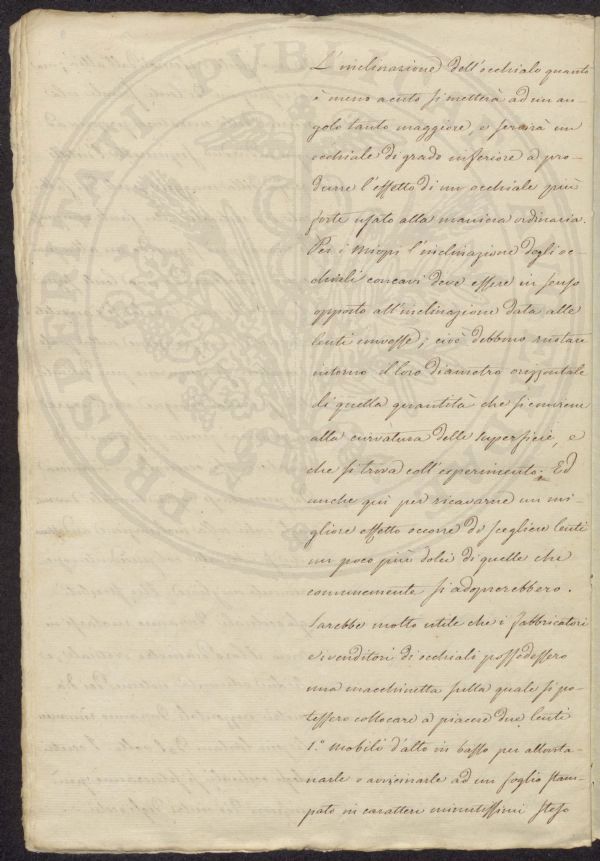 L'inclinazione dell'occhialo quanto
è meno acuto si metterà ad un an-
golo tanto maggiore, e servirà un
occhiale di grado inferiore a pro-
durre l'effetto di un occhiale più
forte usato alla maniera ordinaria.
Per i Miopi l'inclinazione degli oc-
chiali concavi deve essere in senso
opposto all'inclinazione data alle
lenti convesse; cioè debbono ruotare
intorno il loro diametro orizzontale
di quella quantità che si conviene
alla curvatura delle superficie, e
che si trova coll'esperimento. Ed
anche qui per ricavarne un mi-
gliore effetto occorre di scegliere lenti
un poco più dolci di quelle che
comunemente si adoprerebbero.
Sarebbe molto utile che i fabbricatori
e i venditori di occhiali possedessero
una macchinetta sulla quale si po-
tessero collocare a piacere due lenti
1.° mobili d'alto in basso per allonta-
narle o avvicinarle ad un foglio stam-
pato in caratteri minutissimi steso
PROSPERITATI PVBLI